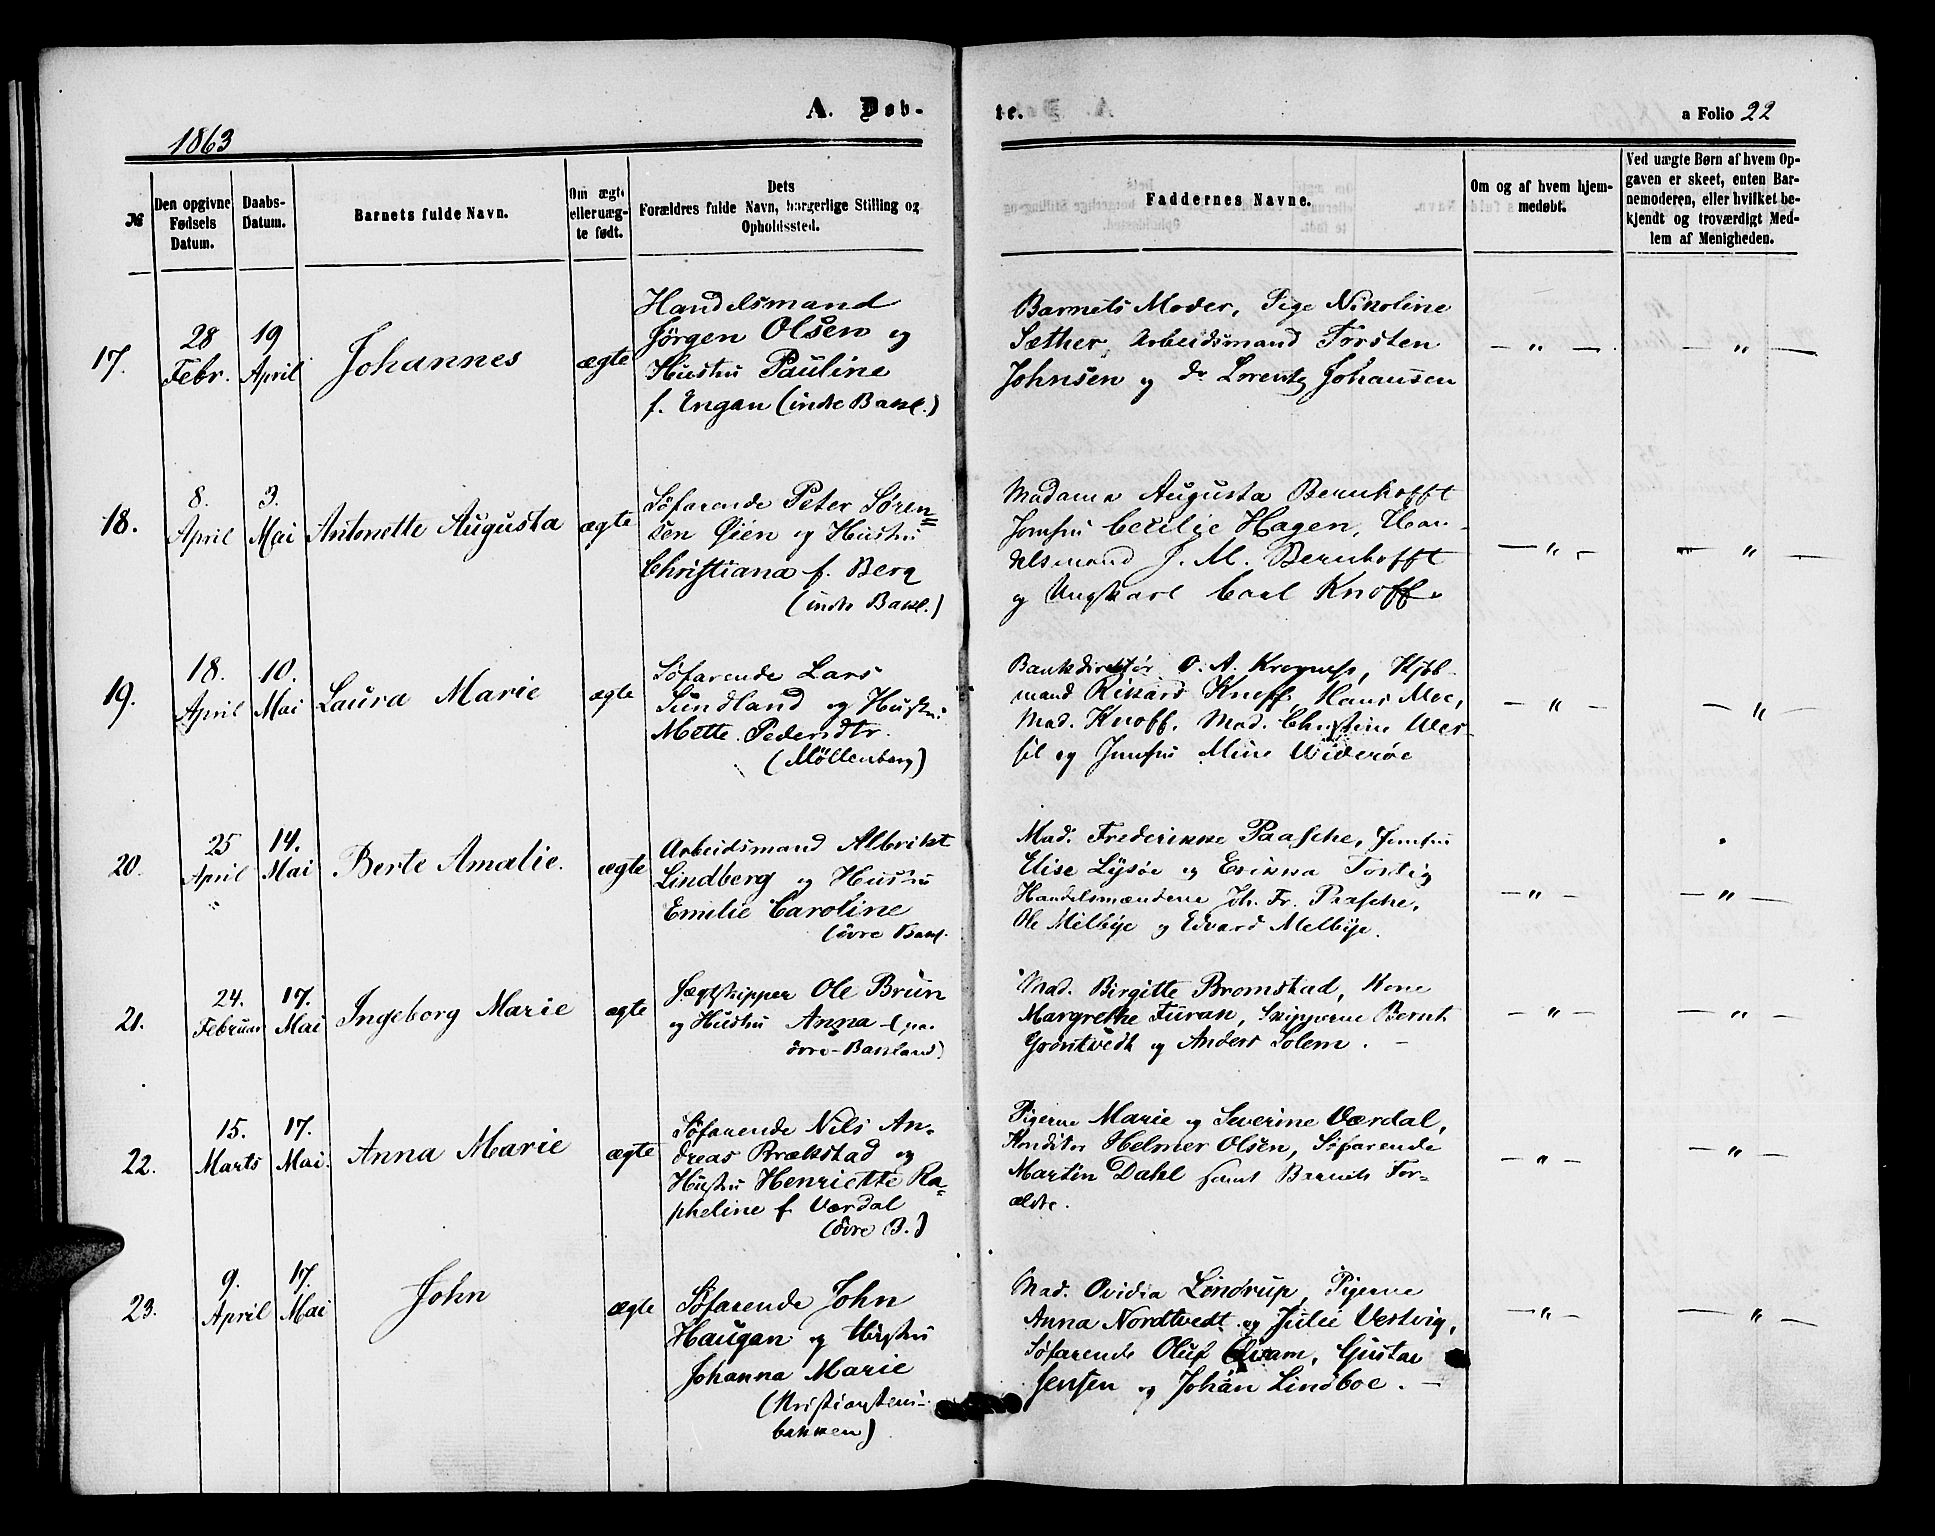 A. Døb-
te.
a Folio 22
1863
№
Den opgivne
Fødsels
Datum.
Daabs-
Datum.
Barnets fulde Navn.
Om ægte
eller uæg-
te født.
Dets
Forældres fulde Navn, borgerlige Stilling og
Opholdssted.
Faddernes Navne.
Om og af hvem hjem-
medøbt.
Ved uægte Børn af hvem Op-
gaven er skeet, enten Bar-
nemoderen, eller hvilket be-
kjendt og troværdigt Med-
lem af Menigheden.
17.
28
Febr.
19
April
Johannes
ægte
Handelsmand
Jørgen Olsen og
Hustru Pauline
f. Engan (indre Bakl.)
Barnets Moder, Pige Nikoline
Sæther, Arbeidsmand Torsten
Johnsen og do Lorentz Johansen
— " —
— " —
18.
8.
April
3.
Mai
Antonette Augusta
ægte
Søfarende Peter Søren=
sen Øien og Hustru
Christiana f. Berg
(indre Bakl.)
Madame Augusta Bernhofft
Jomfru Cecilie Hagen, Han-
delsmand J. M. Bernhofft
og Ungkarl Carl Knoff.
— " —
— " —
19.
18.
April
10.
Mai
Laura Marie
ægte
Søfarende Lars
Sundland og Hustru
Mette Pedersdtr.
(Möllenberg)
Bankdirektør O. A. Krognes, Kjøb-
mand Rikard Knoff, Hans Moe,
Mad. Knoff. Mad. Christine Wes-
sel og Jomfru Mine Widerøe
— " —
— " —
20.
25
April
14.
Mai
Berte Amalie.
ægte
Arbeidsmand Albrikt
Lindberg og Hustru
Emilie Caroline
(övre Bakl.
Mad. Frederikke Paasche, Jomfru
Elise Lysøe og Erikka
Handelsmændene Joh. Fr. Paasche,
Ole Melbye og Edvard Melbye.
— " —
— " —
21.
24.
Februar
17.
Mai
Ingeborg Marie
ægte
Jægtskipper Ole Brun
og Hustru Anna (paa
övre-Bakland)
Mad. Birgitte Bromstad, Kone
Margrethe Furan, Skipperne Bernt
Grøntvedt og Anders Solem. —
— " —
— " —
22.
15.
Marts
17.
Mai.
Anna Marie
ægte
Søfarende Nils An=
dreas Brækstad og
Hustru Henriette Ra=
pheline f. Værdal
(övre B.)
Pigerne Marie og Severine Værdal,
Konditor Helmer Olsen, Søfarende
Martin Dahl samt Barnets For=
ældre.
— " —
— " —
23.
9.
April
17.
Mai
John
ægte
Søfarende John
Haugan og Hustru
Johanna Marie
(Kristianstens-
bakken)
Mad. Ovidia Lindrup, Pigerne
Anna Nordtvedt og Julie Vestvig,
Søfarende Oluf Qvam, Gustav
Jensen og Johan Lindboe. —
— " —
— " —